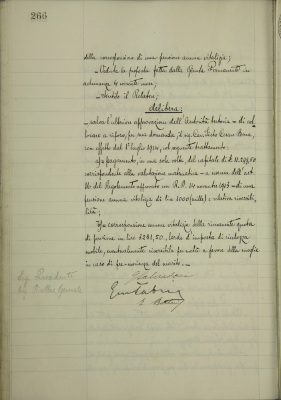 266
della corresponsione di una pensione annua vitalizia;
- Vedute le proposte fatte dalla Giunta Permanente in
adunanza 4 corrente mese;
- Sentito il Relatore;
delibera:
- salvo l'ulteriore approvazione dell'Autorità tutoria - di col-
locare a riposo, per sua domanda, il
con effetto dal 1° luglio 1914, col seguente trattamento:
a) pagamento, in una sola volta, del capitale di L.
corrispondente alla valutazione matematica - a norma dell'art.
del Regolamento approvato con R. D. 24 novembre 1908 - di una
pensione annua vitalizia di Lire 1000 (mille) e relativa riversibi-
lità;
b) corresponsione annua vitalizia della rimanente quota
di pensione in lire 5261,50, lorda d'imposta di ricchezza
mobile, eventualmente riversibile per metà a favore della moglie
in caso di premorienza del marito. -